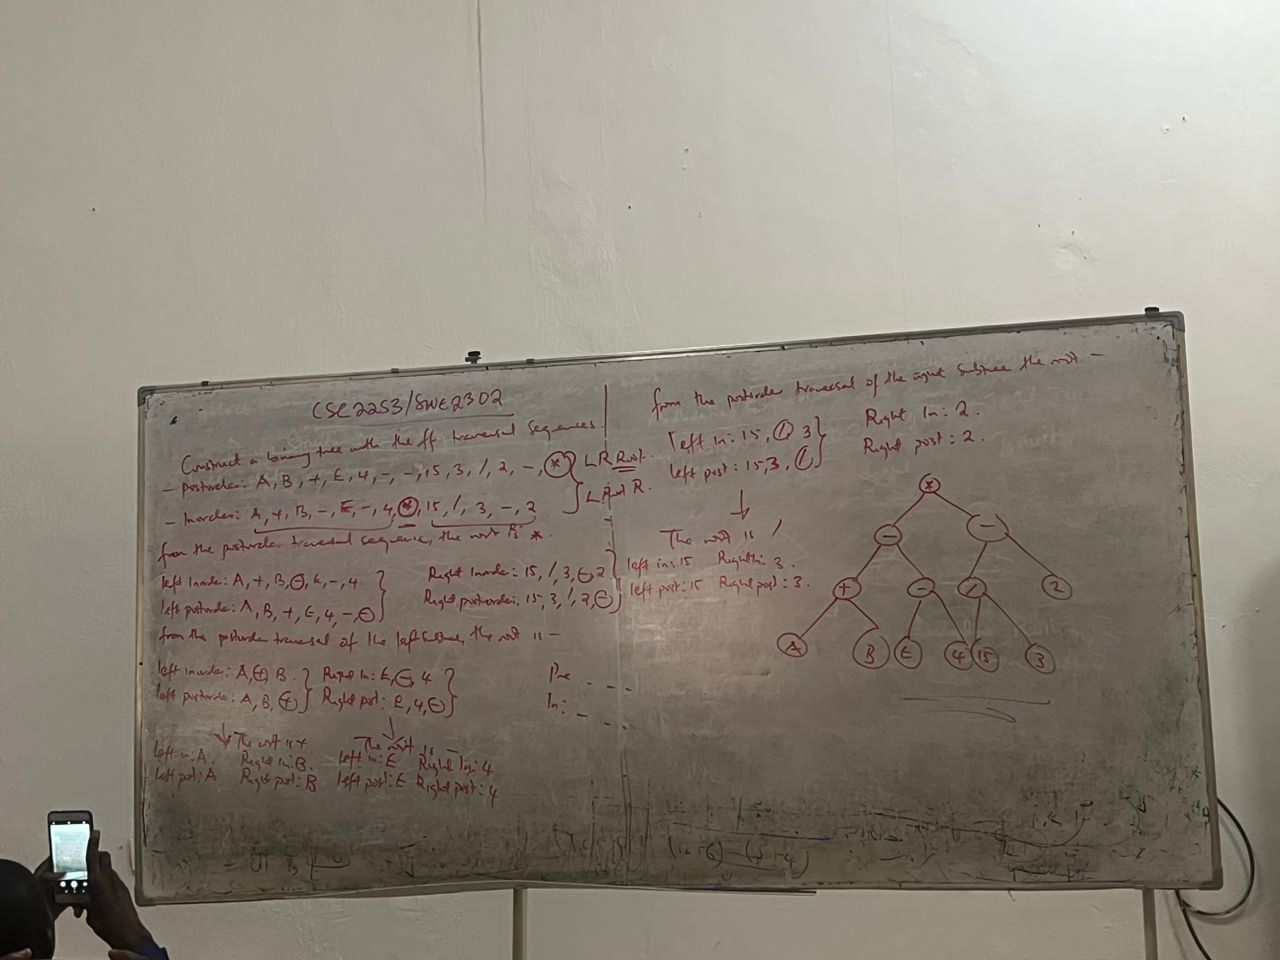 CSC2253/SWE2302
Construct a binary tree with the ff traversal sequences.
- Postorder: A, B, +, E, 4, -, -, 15, 3, /, 2, -, * } L R Root.
- Inorder: A, +, B, -, E, -, 4, *, 15, /, 3, -, 2 } L Root R.
from the postorder traversal sequence, the root is *.
left Inorder: A, +, B, -, E, -, 4
left postorder: A, B, +, E, 4, -, -
Right Inorder: 15, /, 3, -, 2
Right postorder: 15, 3, /, 2, -
from the postorder traversal of the left subtree, the root is -
left inorder: A, +, B.
left postorder: A, B, +
Right In: E, -, 4
Right post: E, 4, -
The root is +
left in: A. Right In: B.
left post: A Right post: B
The root is -
left in: E Right In: 4
left post: E Right post: 4
Pre - - -
In: - - -
from the postorder traversal of the right subtree the root -
left in: 15, / 3
left post: 15, 3, /
Right In: 2.
Right post: 2.
The root is /
left in: 15 Right In: 3.
left post: 15 Right post: 3.
*
- -
+ - / 2
A B E 4 15 3